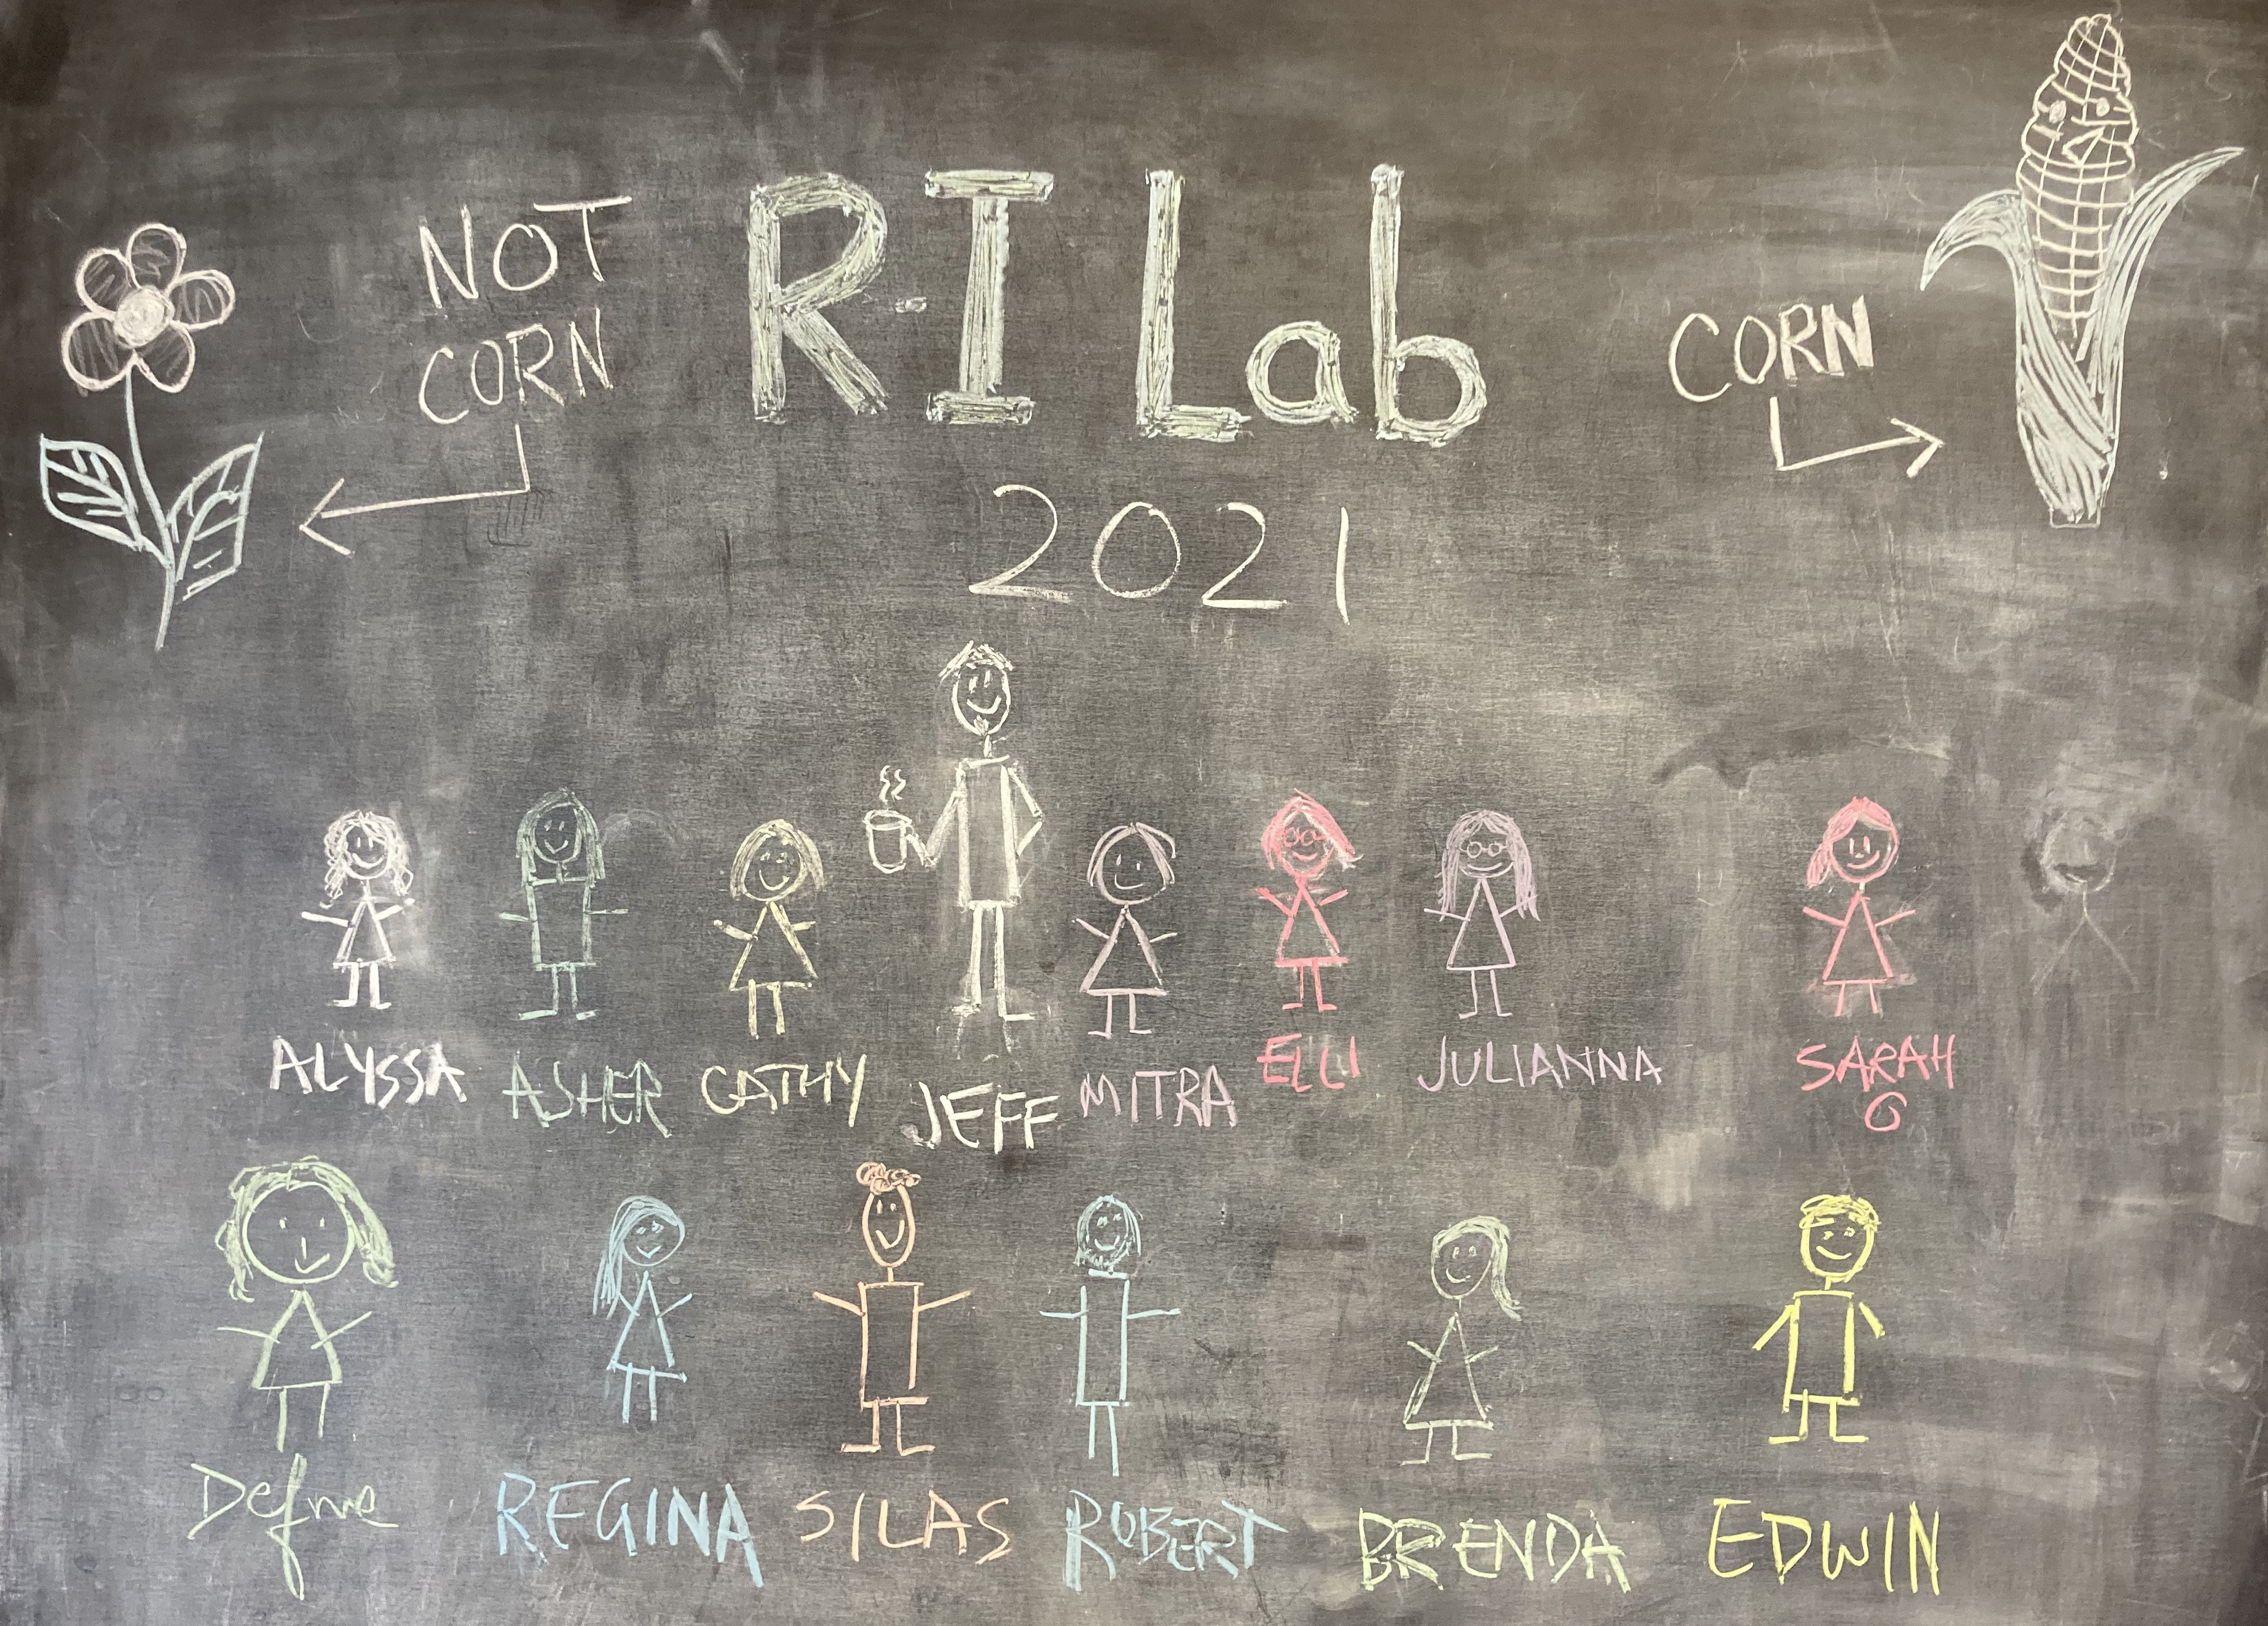 NOT
CORN
RI Lab
2021
CORN
ALYSSA
ASHER
CATHY
JEFF
MITRA
ELLI
JULIANNA
SARAH
G
Defne
REGINA
SILAS
ROBERT
BRENDA
EDWIN